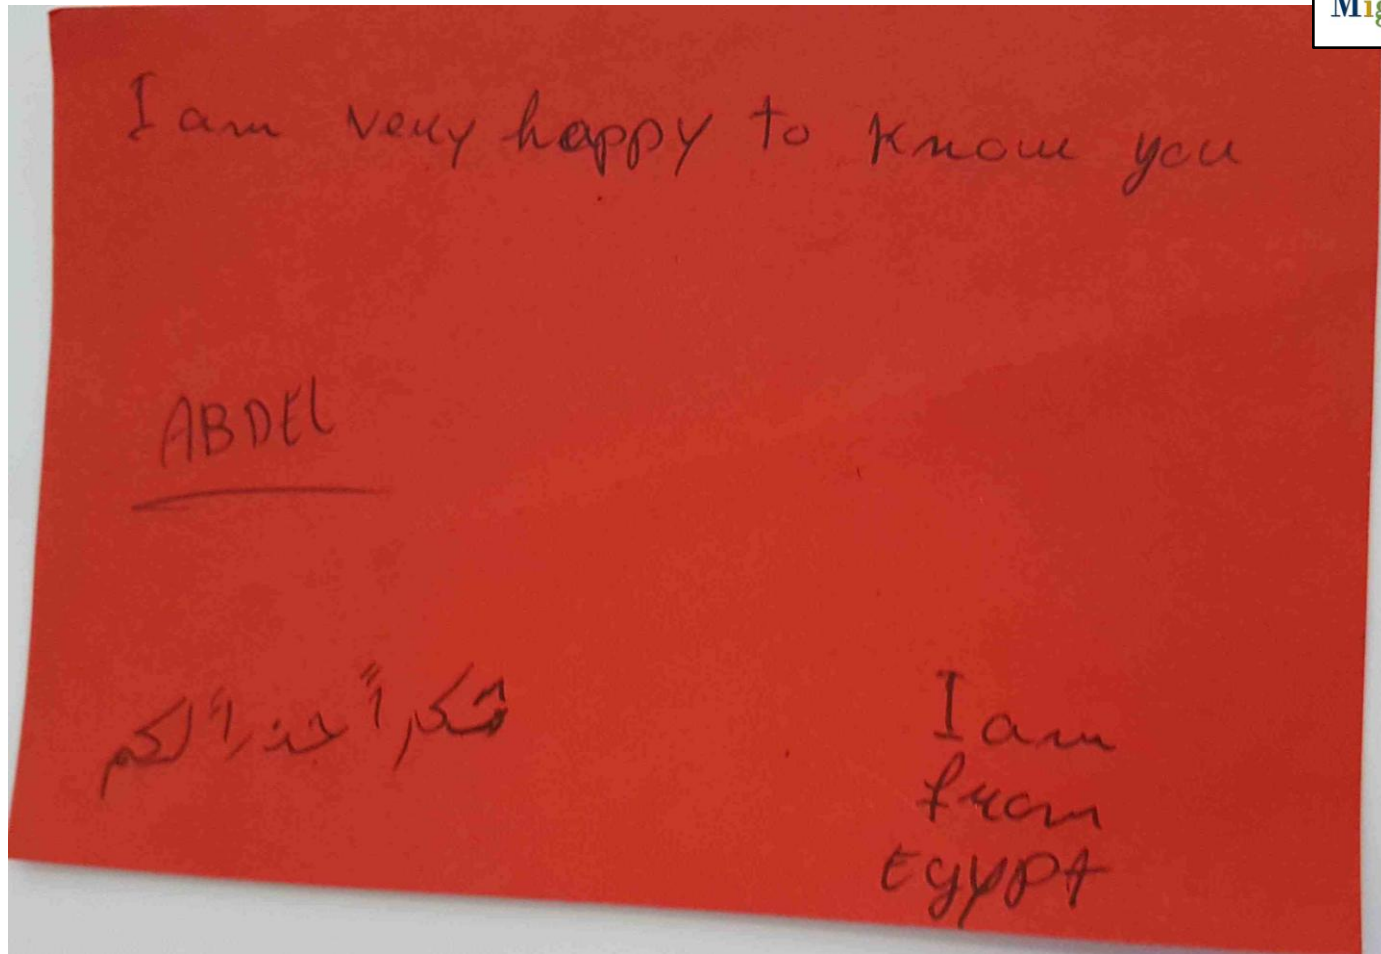 Mig
I am very happy to know you
ABDEL
شكراً لكم
I am
from
Egypt